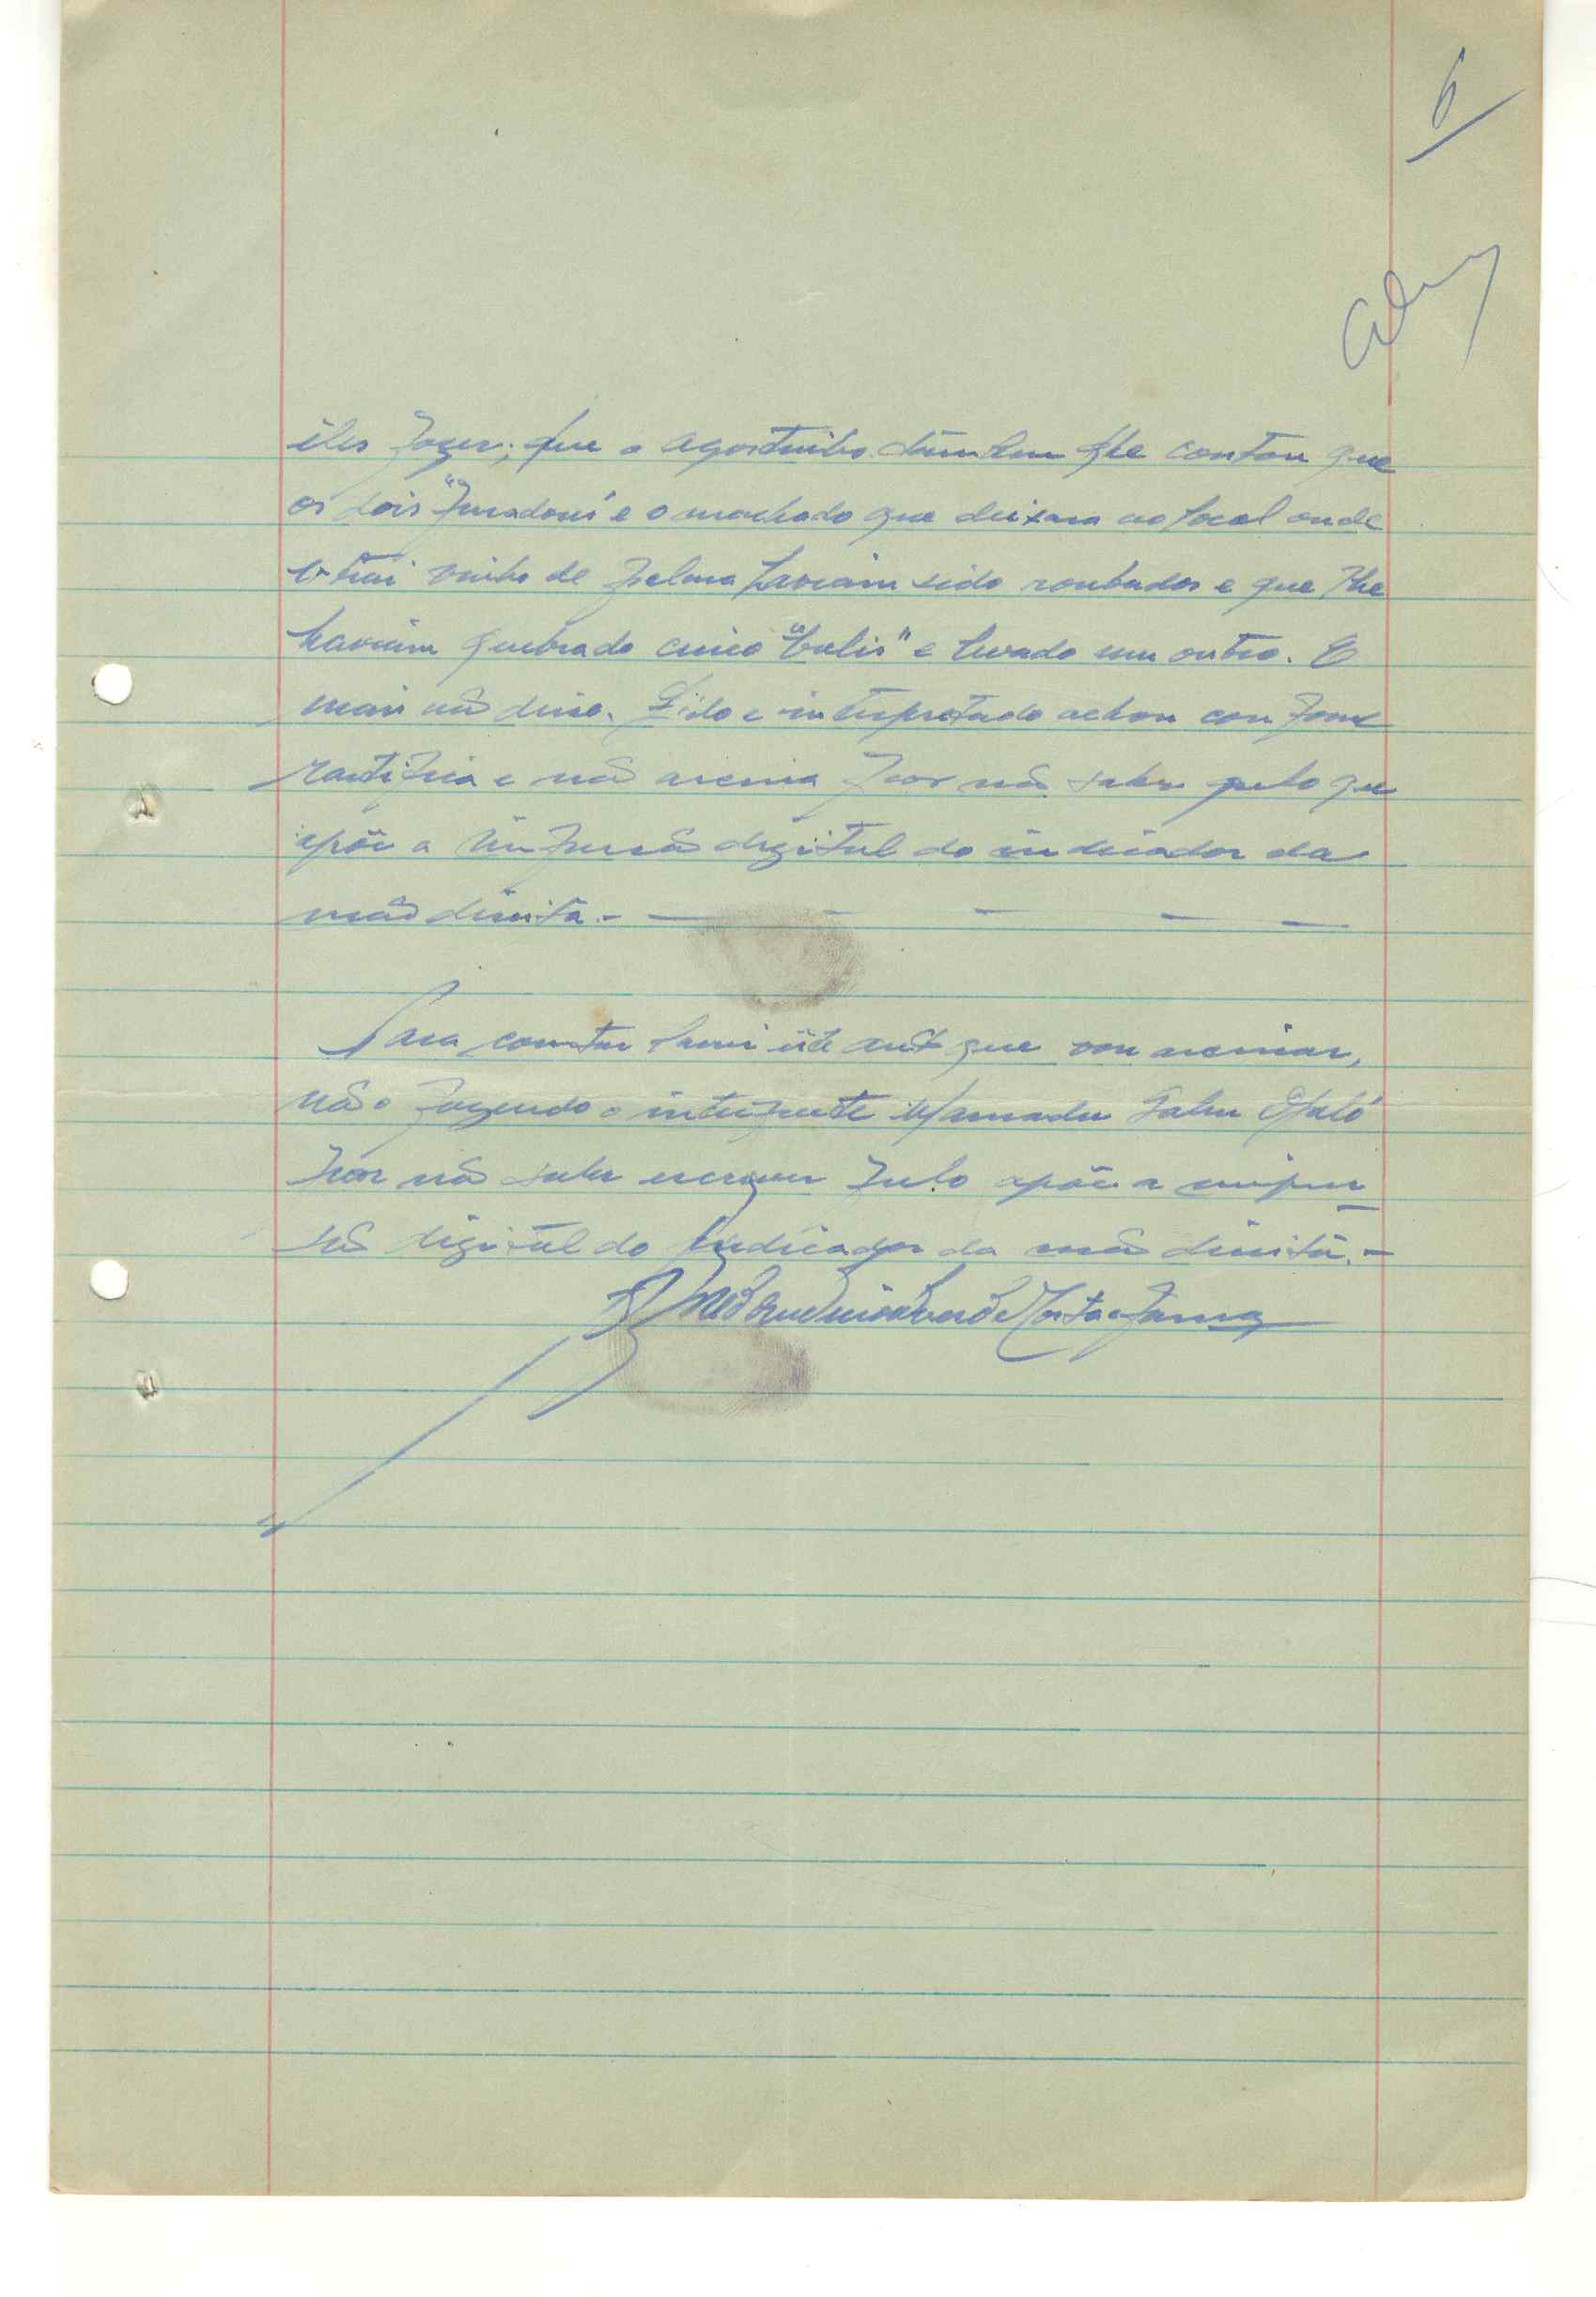 6
êles fazer; que o Agostinho também lhe contou que
os dois "furadores" e o machado que deixara no local onde
extrai vinho de palma haviam sido roubados e que lhe
haviam quebrado cinco e levado um outro. E
mais não disse. Lido e interpretado achou conforme
ratifica e não assina por não saber pelo que
apõe a impressão digital do indicador da
mão direita.-
Para constar lavrei êste auto que vou assinar,
não o fazendo o intérprete Mamadu Djaló
por não saber escrever pelo apõe a impres
são digital do indicador da mão direita.-